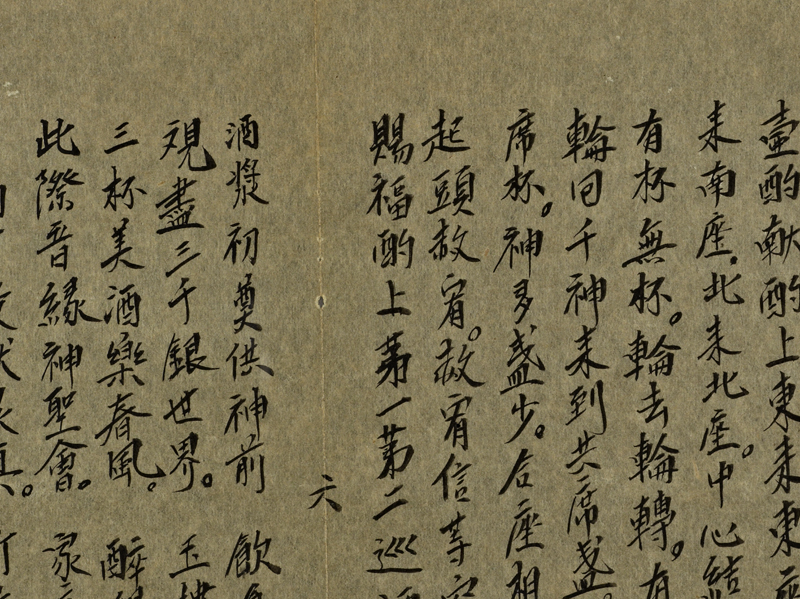 壷酌献酌上東来東
来南座。北来北座。中心結
有杯無杯。輪去輪轉。有
輪回千神来到共席盏。
席杯。神多盏少。合座相
起頭赦宥。赦宥信等
賜福酌上第一第二巡
六
酒漿初奠供神前 飲
殑盡三千銀世界。 玉
三杯美酒樂春風。 醉
此際音緣神聖會。 家